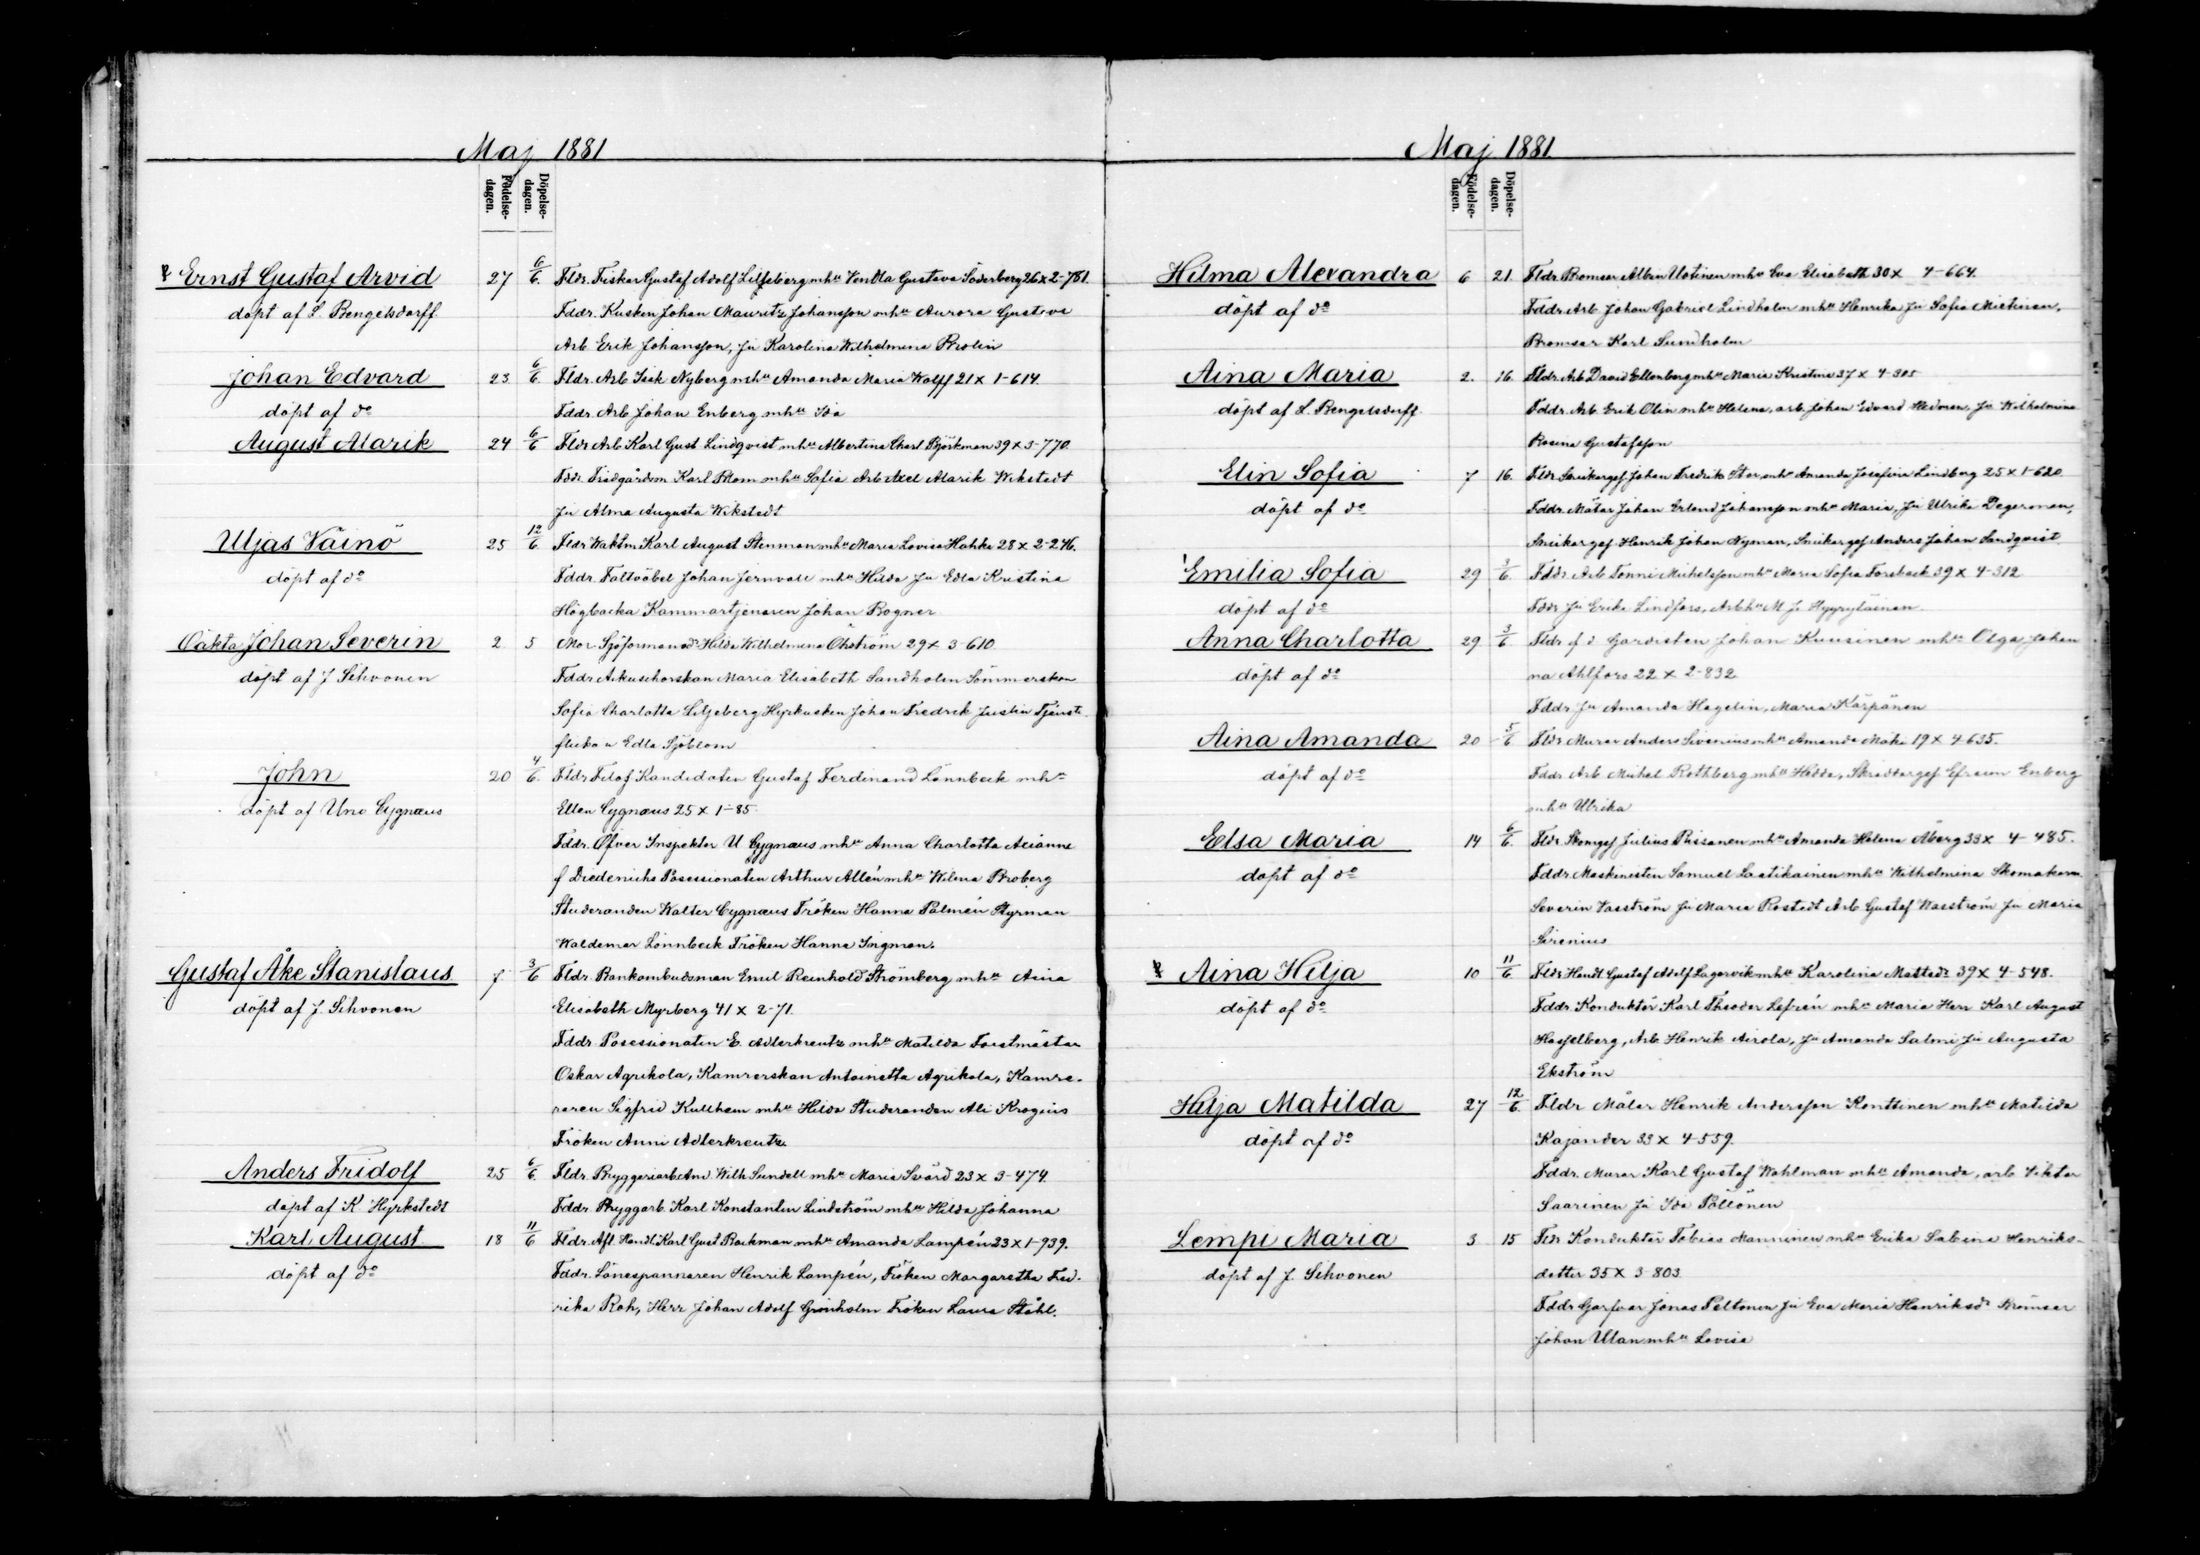 Maj 1881
Födelse-dagen. Döpelse-dagen.
Ernst Gustaf Arvid 27 6/6. Fldr. Fiskar Gustaf Adolf Liljeberg mhu Vendla Gustava Söderberg 26 x 2-781.
döpt af L. Bengelsdorff Fddr. Kusken Johan Mauritz Johansson mhu Aurora Gustava
Arb Erik Johansson, Ju Karolina Wilhelmina Brolin
Johan Edvard 23 6/6. Fldr. Arb Isak Nyberg mhu Amanda Maria Wolff 21 x 1-614.
döpt af do Fddr. Arb Johan Enberg mhu Ida
August Alarik 24 6/6 Fldr Arb Karl Gust Lindqvist mhu Albertina Charl Björkman 39 x 3-770.
Fddr. Trädgårdsm Karl Blom mhu Sofia Arb Axel Alarik Wikstedt
Ju Alma Augusta Wikstedt
Uljas Väinö 25 12/6 Fldr Waktm Karl August Stenman mhu Maria Lovisa Hahka 28 x 2-276.
döpt af do Fddr. Faltväbel Johan Jernvall mhu Hilda Ju Edla Kristina
Högbacka Kammartjenaren Johan Bogner
Oäkta Johan Severin 2 5 Mor Sjöformansdr Hilda Wilhelmina Öhström 29 x 3-610
döpt af J Sihvonen Fddr. Ackuschörskan Maria Elisabeth Sandholm Sömmerskan
Sofia Charlotta Liljeberg Hyrkusken Johan Fredrik Justin Tjenste
flickan Edla Sjöblom
John 20 4/6. Fldr Filosf Kandidaten Gustaf Ferdinand Lönnbeck mhu
döpt af Uno Cygnæus Ellen Cygnæus 25 x 1-85.
Fddr. Öfver Inspektor U Cygnæus mhu Anna Charlotta Axianne
f Diederichs Posessionaten Arthur Allén mhu Wilma Broberg
Studeranden Walter Cygnæus Fröken Hanna Palmén Styrman
Waldemar Lönnbeck Fröken Hanna Ingman.
Gustaf Åke Stanislaus 7 3/6 Fldr. Bankombudsman Emil Reinhold Strömberg mhu Aina
döpt af J. Sihvonen Elisabeth Myrberg 41 x 2-71.
Fddr. Posessionaten E. Adlerkreutz mhu Matilda Forstmästar
Oskar Agrikola, Kamrerskan Antoinetta Agrikola, Kamre-
reren Sigfrid Kullhem mhu Hilda Studeranden Ali Krogius
Fröken Anni Adlerkreutz.
Anders Fridolf 25 6/6. Fldr. Bryggeriarb And Wilh Sundell mhu Maria Svärd 23 x 3-474.
döpt af K Hyrkstedt Fddr. Bryggarb. Karl Konstantin Lindström mhu Hilda Johanna
Karl August 18 11/6 Fldr. Afl. Handl. Karl Gust Backman mhu Amanda Lampén 23 x 1-939.
döpt af do Fddr. Länespannaren Henrik Lampén, Fröken Margaretha Fred-
rika Roh, Herr Johan Adolf Grönholm Fröken Laura Ståhl.
Maj 1881
Födelse-dagen. Döpelse-dagen.
Hilma Alexandra 6 21. Fldr. Bromsar Albin Uotinen mhu Eva Elisabeth 30 x 4-664.
döpt af do Fddr. Arb Johan Gabriel Lindholm mhu Henrika Ju Sofia Miettinen,
Bromsar Karl Sundholm
Aina Maria 2. 16. Fldr. Arb David Ellenberg mhu Maria Kristina 37 x 4-305
döpt af L. Bengelsdorff Fddr. Arb. Erik Olin mhu Helena, arb. Johan Edvard Hedman, Ju Wilhelmina
Rosina Gustafsson
Elin Sofia 7 16. Fldr. Snickargesf Johan Fredrik Ster mhu Amanda Josefina Lindberg 25 x 1-620
döpt af do Fddr. Målar Johan Erland Johansson mhu Maria, Ju Ulrika Degerman,
Snickargesf Henrik Johan Nyman, Snickargesf Anders Johan Sandqvist.
Emilia Sofia 29 3/6. Fldr. Arb Tonni Michelsson mhu Maria Sofia Forsback 39 x 4-312
döpt af do Fddr Ju Erika Lindfors, Arbhu M. J. Hyyryläinen
Anna Charlotta 29 3/6. Fldr f d Gardisten Johan Kuusinen mhu Olga Johan
döpt af do na Ahlfors 22 x 2-832
Fddr Ju Amanda Hagelin, Maria Kärpänen
Aina Amanda 20 5/6. Fldr Murar Anders Sirenius mhu Amanda Mäki 19 x 4-635.
döpt af do Fddr Arb Mickel Rothberg mhu Hedda, Skräddargesf Efraim Enberg
mhu Ulrika
Elsa Maria 14 6/6. Fldr. Skomgesf Julius Pissanen mhu Amanda Helena Åberg 33 x 4-485.
döpt af do Fddr. Maskinisten Samuel Laatikainen mhu Wilhelmina Skomakaren
Severin Vasström Ju Maria Rostedt Arb Gustaf Wasström Ju Maria
Sirenius
Aina Hilja 10 11/6 Fldr Handl Gustaf Adolf Lagervik mhu Karolina Mattsdr 39 x 4-548.
döpt af do Fddr. Konduktör Karl Theodor Lefrén mhu Maria Herr Karl August
Hasselberg, Arb. Henrik Airola, Ju Amanda Salmi Ju Augusta
Ekström
Hilja Matilda 27 12/6 Fldr Målar Henrik Andersson Konttinen mhu Matilda
döpt af do Kajander 33 x 4-559.
Fddr. Murar Karl Gustaf Wahlman mhu Amanda, arb. Viktor
Saarinen Ju Ida Pöllönen
Lempi Maria 3 15 Fldr Konduktör Tobias Manninen mhu Erika Sabina Henriks-
döpt af J. Sihvonen dotter 35 x 3-803
Fddr Garfvar Jonas Peltonen Ju Eva Maria Henriksdr Bromsar
Johan Ulan mhu Lovisa